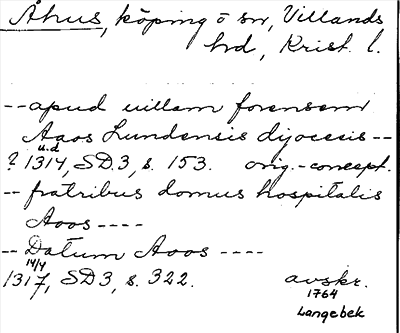 Åhus, köping o sn, Villands
hrd, Krist. l.
-- apud uillam forensem
Aaos Lundensis dyocesis --
u.d
? 1314, SD3, s. 153. orig.-concept.
-- fratribus domus hospitalis
Aoos ----
-- Datum Aoos ----
14/4
1317, SD3, s. 322. avskr.
1764
Langebek